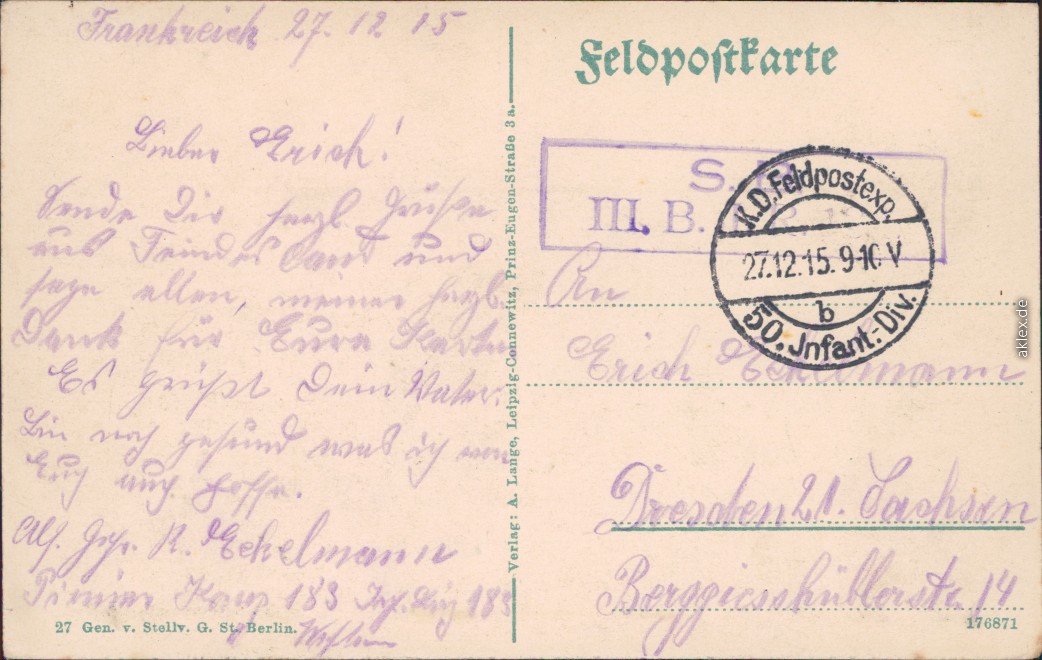 Frankreich 27.12 15
Lieber Erich!
Sende Dir herzl. Grüße
aus Feindes Land und
sage allen, meinen herzl.
Dank für Eure Karten
Es grüßt Dein Vater.
Bin noch gesund was ich von
Euch auch hoffe.
R. Eckelmann
183 183
27 Gen. v. Stellv. G. St. Berlin.
Verlag: A. Lange, Leipzig-Connewitz, Prinz-Eugen-Straße 3a.
Feldpostkarte
S.
III. B.
K.D. Feldpostexp.
27.12.15. 9-10 V
b
50. Infant.-Div.
An
Erich Eckelmann
Dresden 21. Sachsen
Berggiesshüblerstr. 14
176871
aklex.de